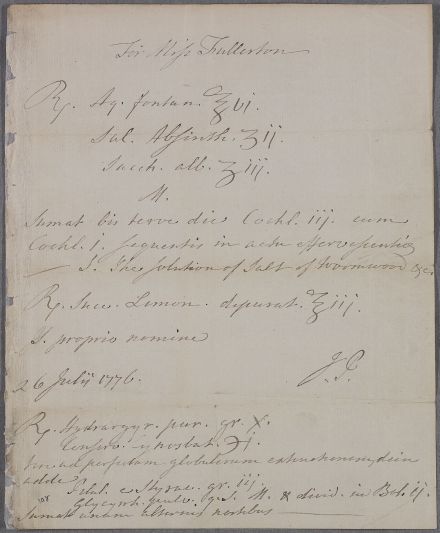 For Miss Fullerton
℞. Aq. fontan. ℥vj.
Sal. Absinth. ʒij.
Sacch. alb. ʒiij.
M.
Sumat bis terve die Cochl. iij. cum
Cochl. j. sequentis in actu effervescentiæ
S. The solution of Salt of Wormwood &c.
℞. Succ. Limon. depurat. ℥iij.
S. proprio nomine
26 Julij 1776.
J. P.
℞. Hydrargyr. pur. gr. x.
Conserv. cynosbat. ℈j.
tere ad perfectam globulorum extinctionem, dein
adde
Pilul. e Styrac. gr. iij.
Glycyrrh. pulv. q. s. M. & divid. in Bol. ij.
Sumat unum alternis noctibus